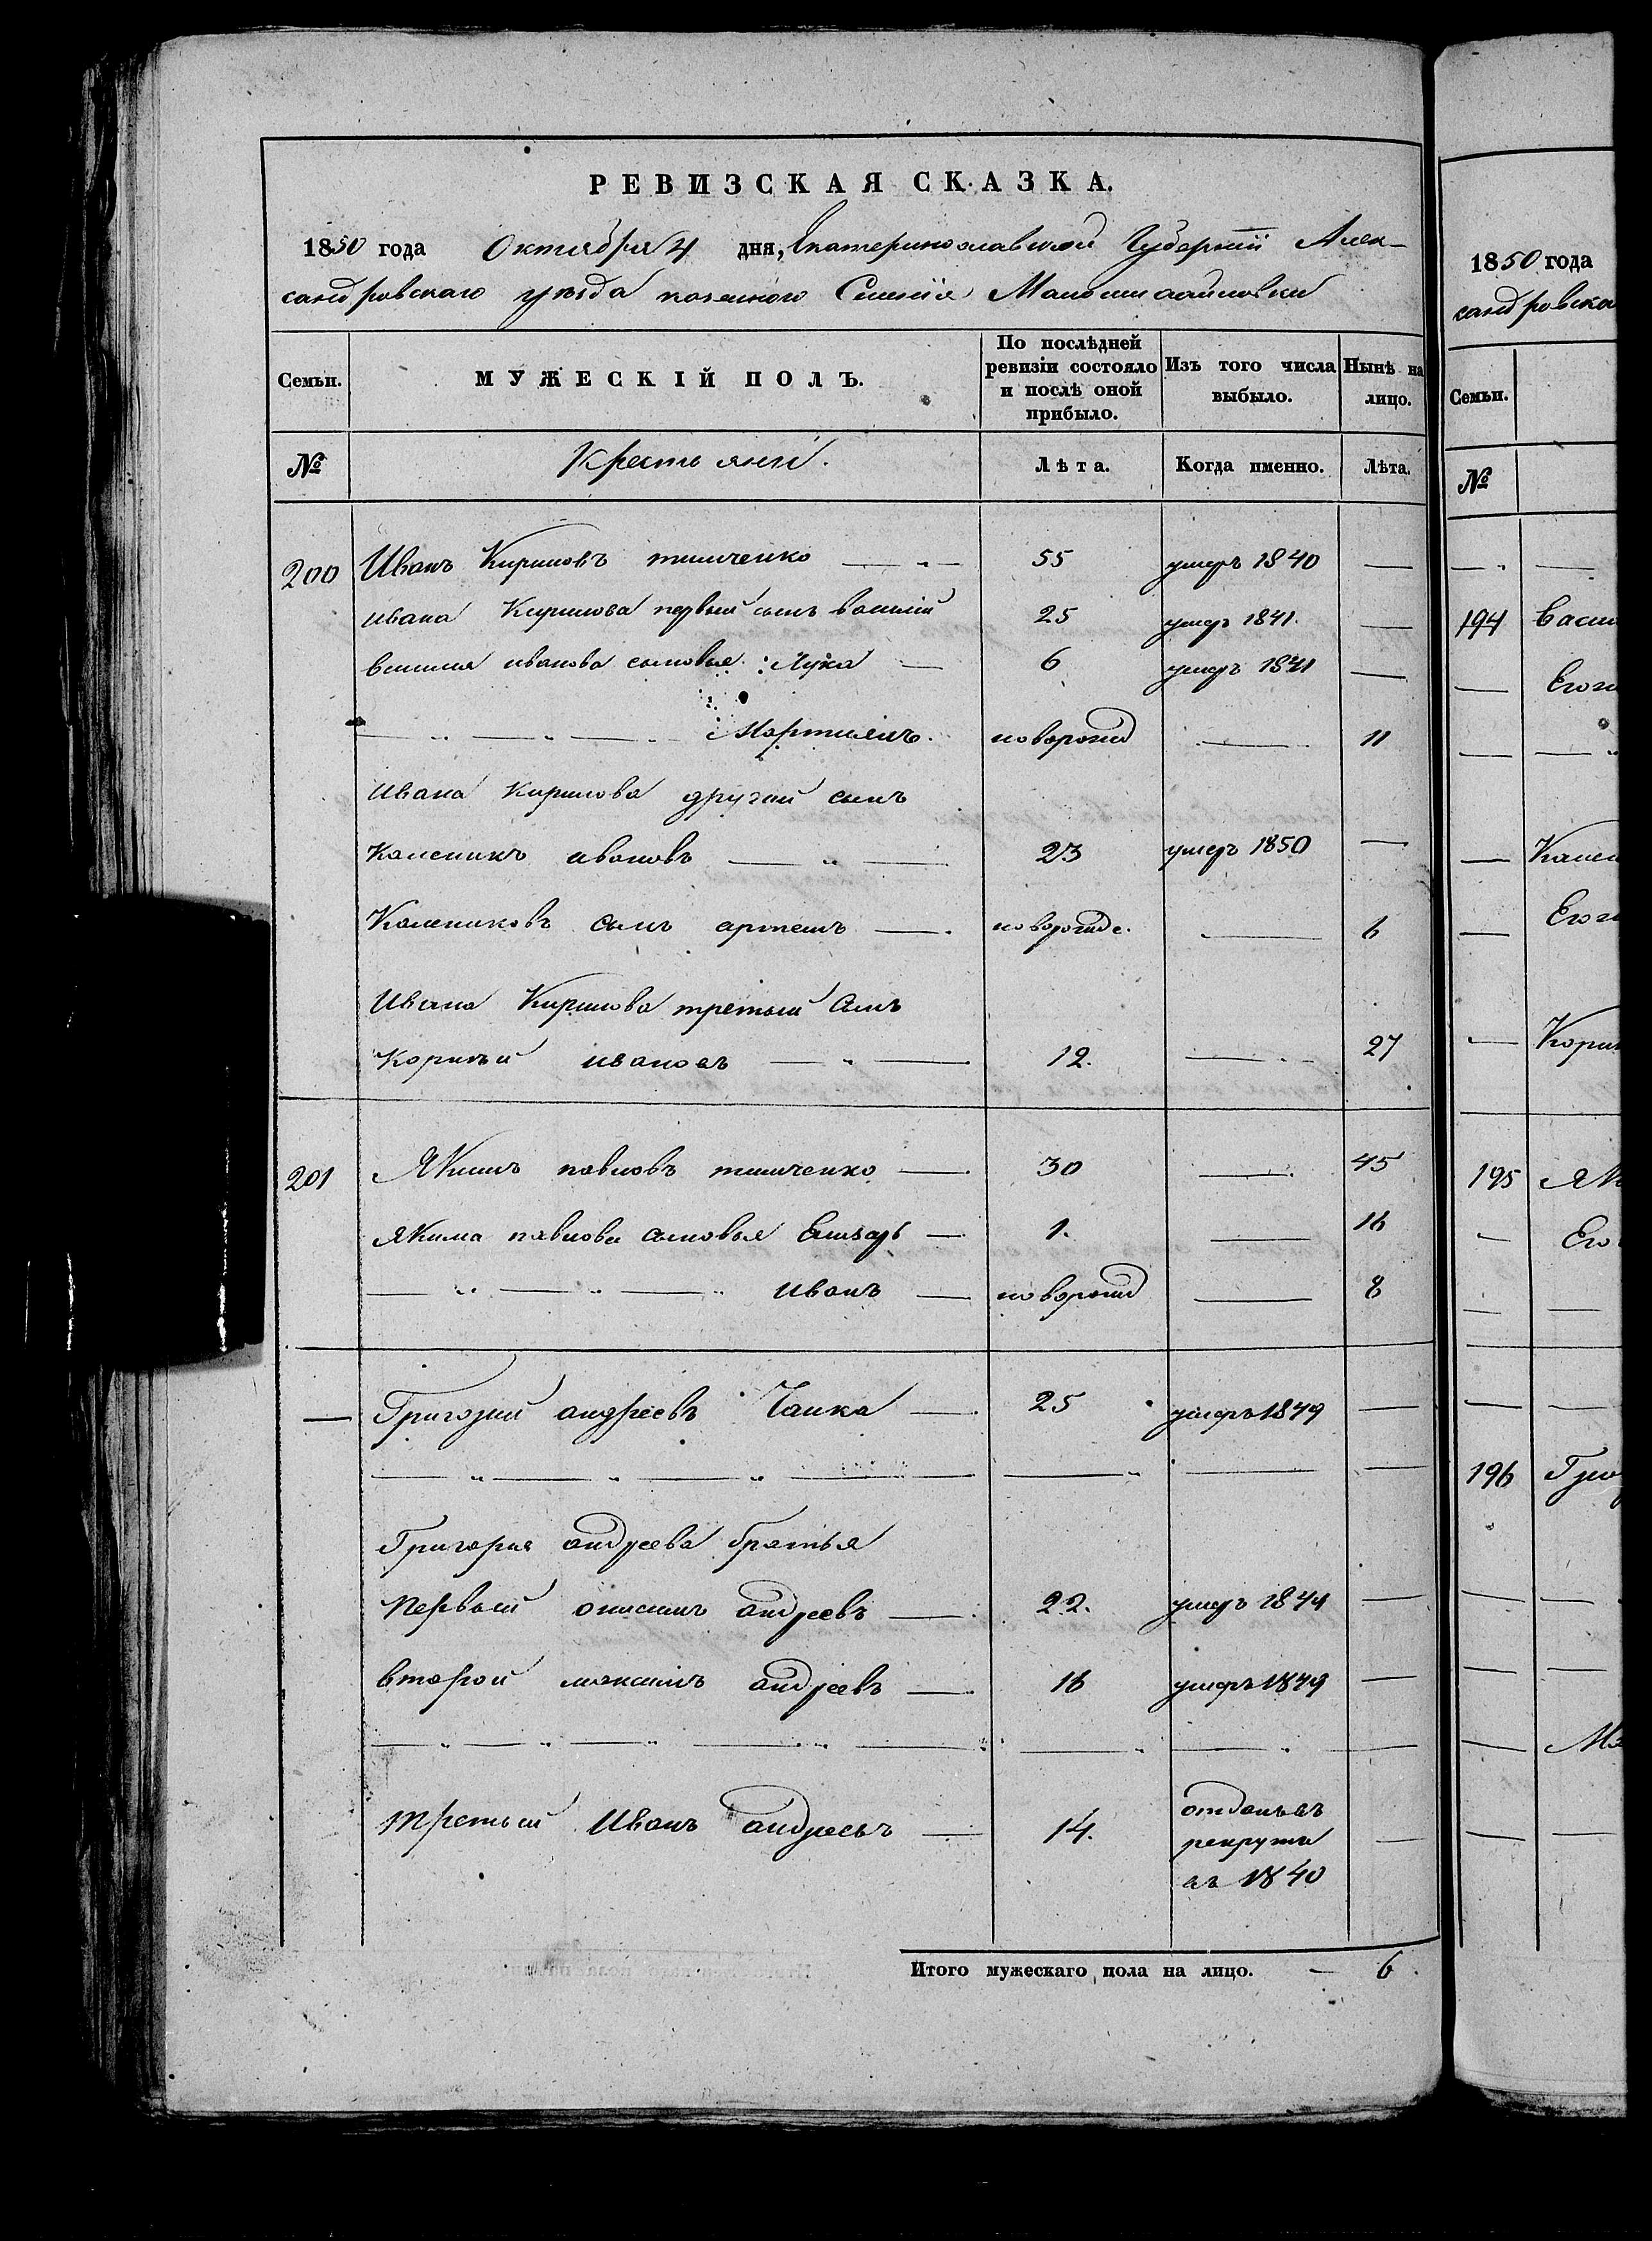 РЕВИЗСКАЯ СКАЗКА.
1850 года Октября 4 дня, Екатеринославской Губерніи Алек-
сандровскаго уѣзда казенного Селенія Маломихайловки
Семьи. МУЖЕСКІЙ ПОЛЪ. По послѣдней ревизіи состояло и послѣ оной прибыло. Изъ того числа выбыло. Нынѣ на лицо.
№ Крестьяни. Лѣта. Когда именно. Лѣта.
200 Иванъ Кириловъ тимченко — „ — 55 умеръ 1840 —
ивана Кирилова первый сынъ василій 25 умеръ 1841. —
василия иванова сыновья: Лука — 6 умеръ 1841 —
— „ — „ — Мартиянъ. новорожд — 11
Ивана Кирилова другий сынъ
Каленикъ ивановъ — „ — 23 умеръ 1850 —
Калениковъ сынъ артемъ —. новорожде. — 6
Ивана Кирилова третый Сынъ
Корнѣй ивановъ — „ — 12. — 27
201 Якимъ павловъ тимченко — 30 — 45
якима павлова сыновья Елизаръ — 1. — 16
— „ — „ — „ иванъ — новорожд — 8
— Григорий андреевъ Чайка — 25 умеръ 1849 —
— „ — „ — „ — — „ — —
Григория андреева братья
Первый онисимъ андреевъ — 22. умеръ 1844 —
второй максимъ андреевъ — 16 умеръ 1849 —
— „ — „ — „ — „ — — „ — „ —
третый Иванъ андреевъ — 14. отданъ въ рекруты въ 1840 —
Итого мужескаго пола на лицо. — 6
1850 года
сандровска
Семьи.
№
— „ —
194 Васи
— Его
— — „
— Камен
— Его
— Корн
195 Як
— Его
— —
— —
196 Григ
— —
— —
— Ма
— —